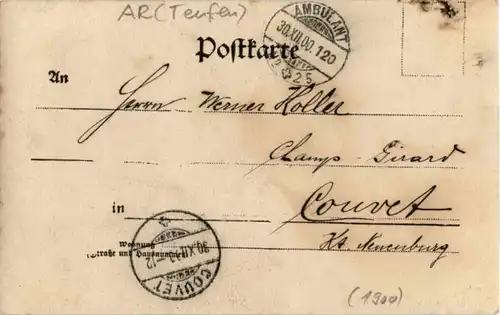 AR (Teufen)
AMBULANT
30.XII.00.120
Postkarte
An
Herrn Werner Holler
Champ-Girard
in Couvet
Wohnung
(Straße und Hausnummer)
Kt. Neuenburg
30.XII.00.-12
COUVET
(1900)